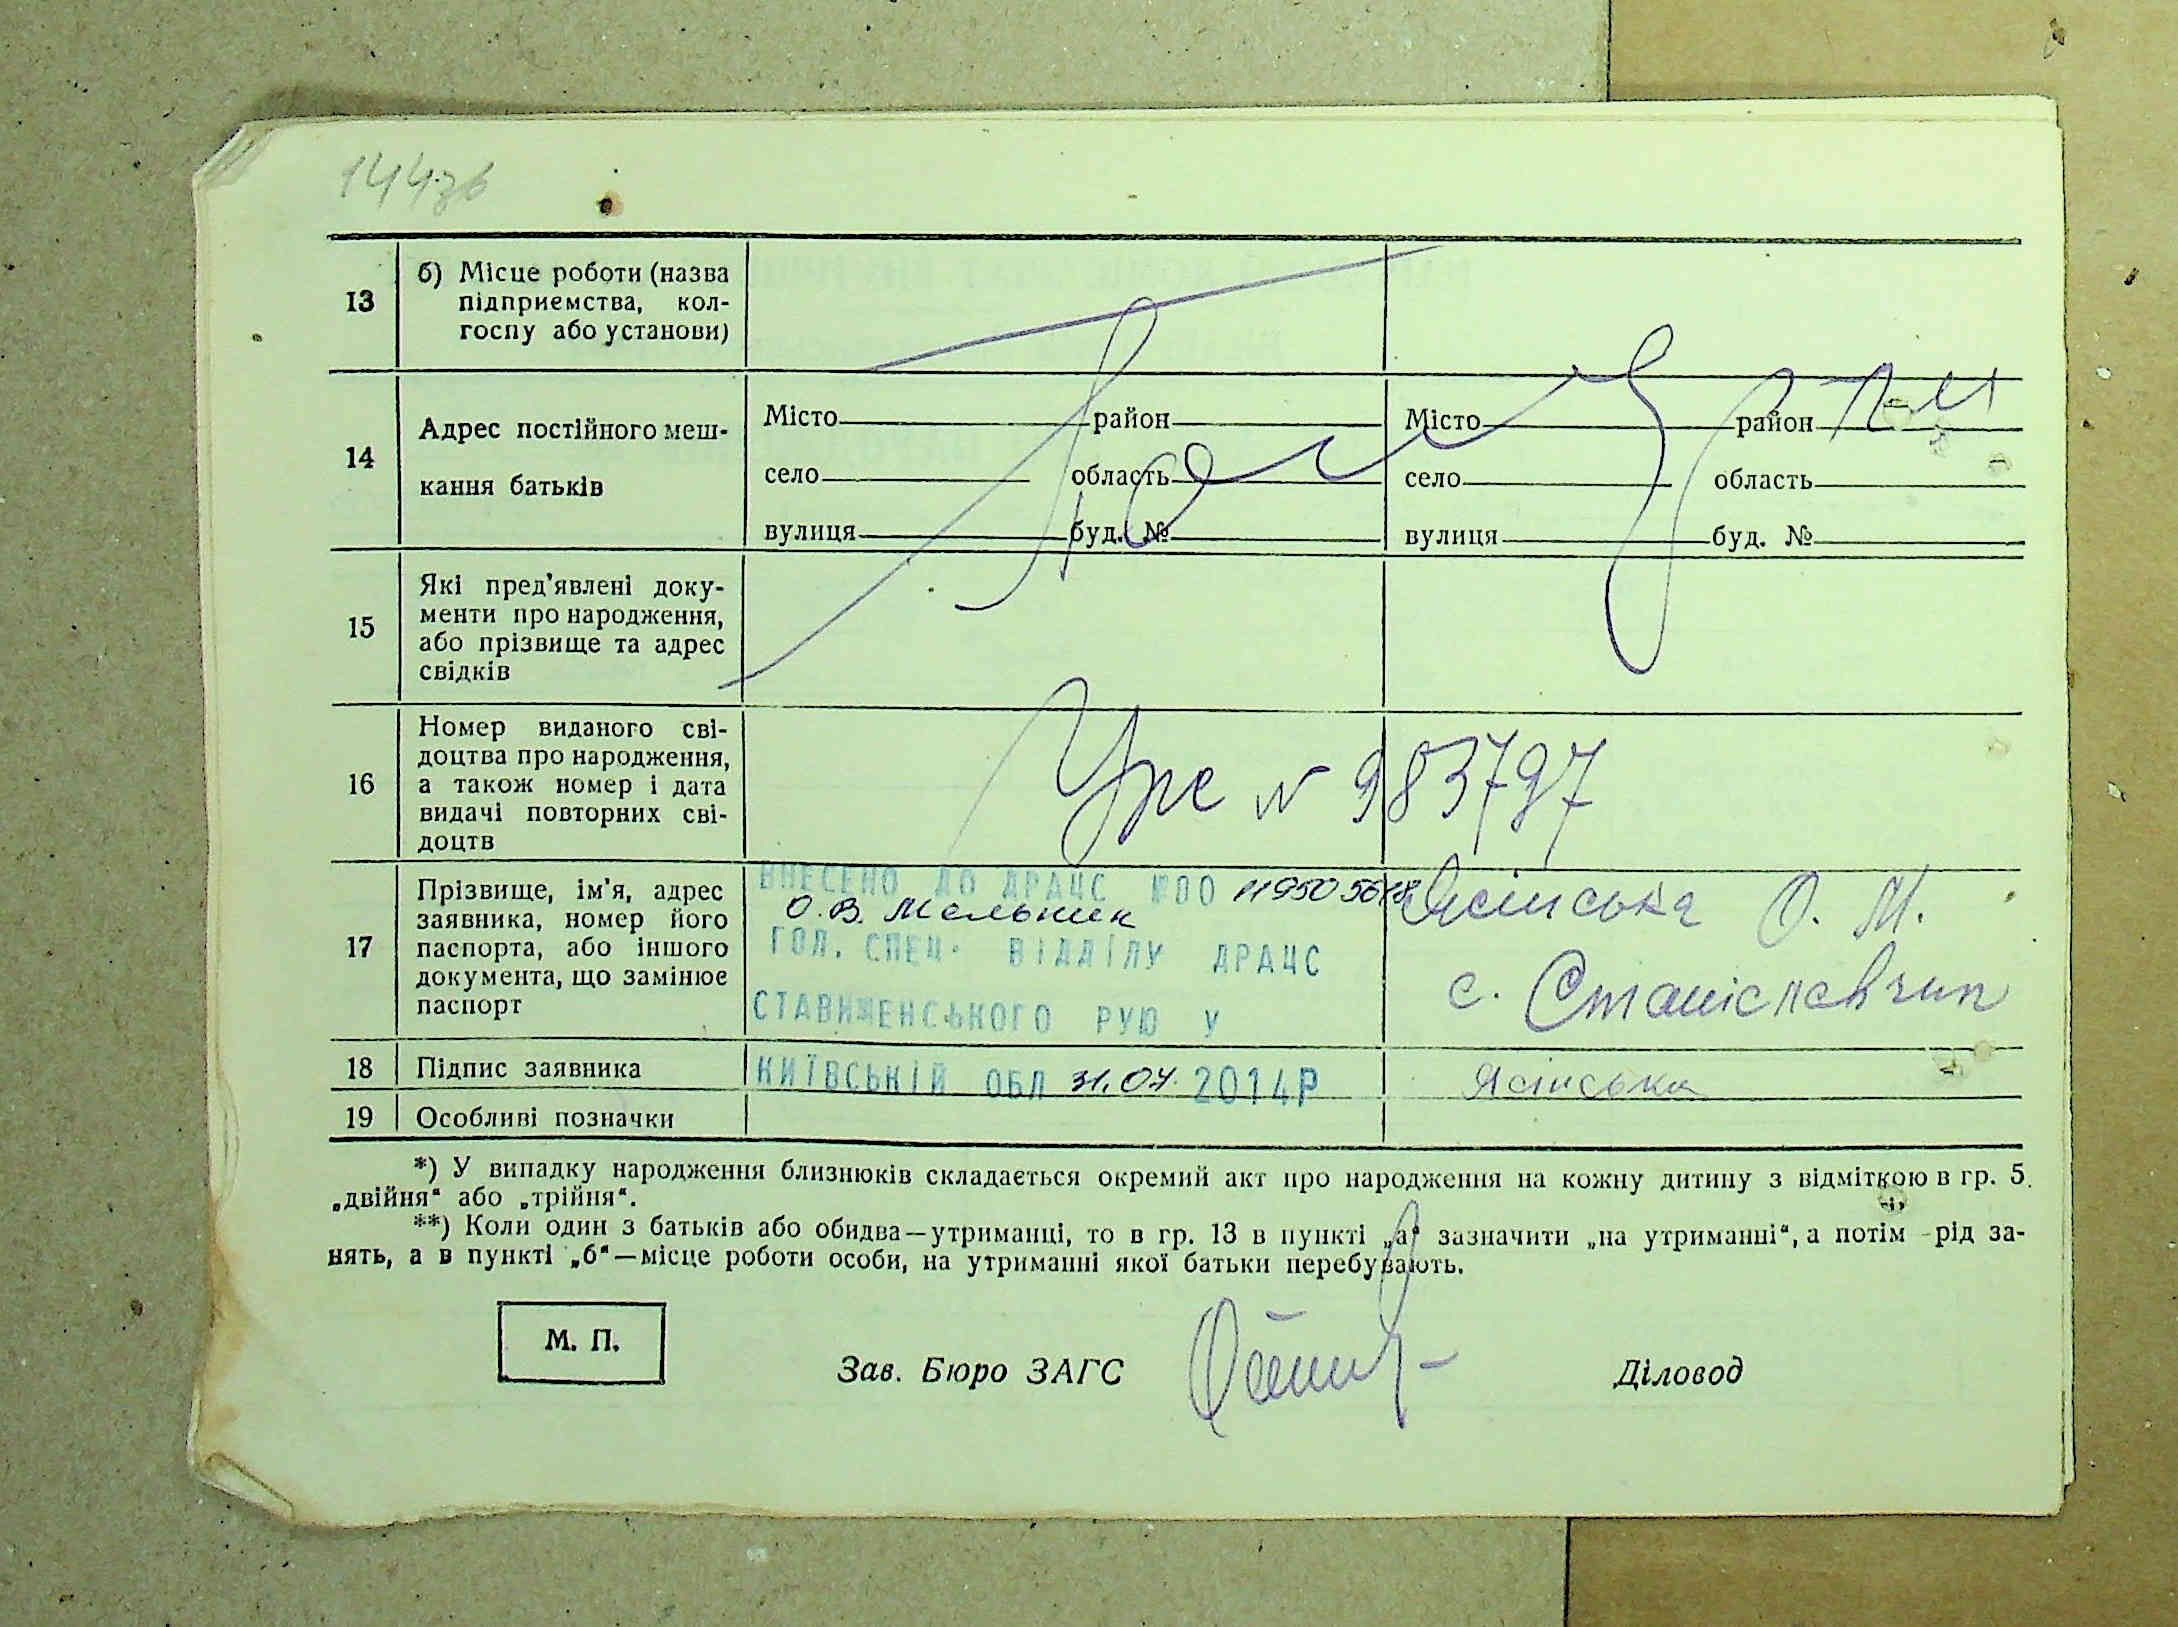 144зв
13
б) Місце роботи (назва
підприємства, кол-
госпу або установи)
14
Адрес постійного меш-
кання батьків
Місто район
село область
вулиця буд. №
Місто район
село область
вулиця буд. №
15
Які пред'явлені доку-
менти про народження,
або прізвище та адрес
свідків
16
Номер виданого сві-
доцтва про народження,
а також номер і дата
видачі повторних сві-
доцтв
№ 983797
17
Прізвище, ім'я, адрес
заявника, номер його
паспорта, або іншого
документа, що замінює
паспорт
ВНЕСЕНО ДО ДРАЦС №00
О.В. Мельник
ГОЛ. СПЕЦ. ВІДДІЛУ ДРАЦС
СТАВИЩЕНСЬКОГО РУЮ У
КИЇВСЬКІЙ ОБЛ 31.07. 2014Р
Ясінська О. М.
с. Станіславчик
18
Підпис заявника
Ясінська
19
Особливі позначки
*) У випадку народження близнюків складається окремий акт про народження на кожну дитину з відміткою в гр. 5.
„двійня“ або „трійня“.
**) Коли один з батьків або обидва—утриманці, то в гр. 13 в пункті „а“ зазначити „на утриманні“, а потім -рід за-
нять, а в пункті „б“—місце роботи особи, на утриманні якої батьки перебувають.
М. П.
Зав. Бюро ЗАГС
Діловод